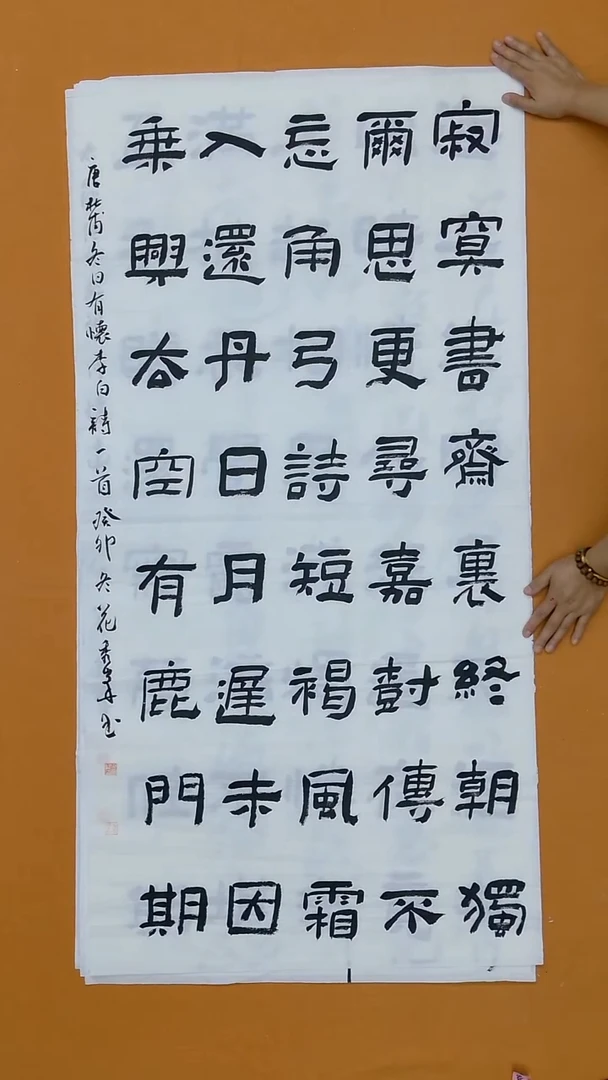 寂寞書齋裏終朝獨
爾思更尋嘉尌傳不
忘角弓詩短褐風霜
入還丹日月遲未因
乘興去空有鹿門期
唐杜甫冬日有懷李白詩一首癸卯冬花